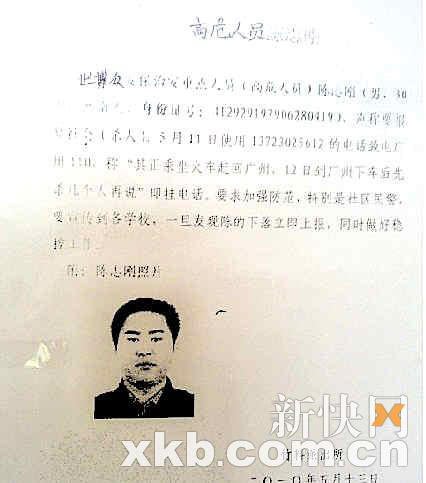 高危人员陈志刚
世博 安保治安重点人员（高危人员）陈志刚（男，30
身份证号：412929197906280419），声称要报
社会（杀人）。5月11日使用13723025612的电话致电广
州110，称“其正乘坐火车赶回广州，12日到广州下车后先
杀几个人再说”即挂电话。要求加强防范，特别是社区民警，
要宣传到各学校，一旦发现陈的下落立即上报，同时做好稳
控工作。
附：陈志刚照片
新快网
派出所
xkb.com.cn
二〇一〇年五月十三日